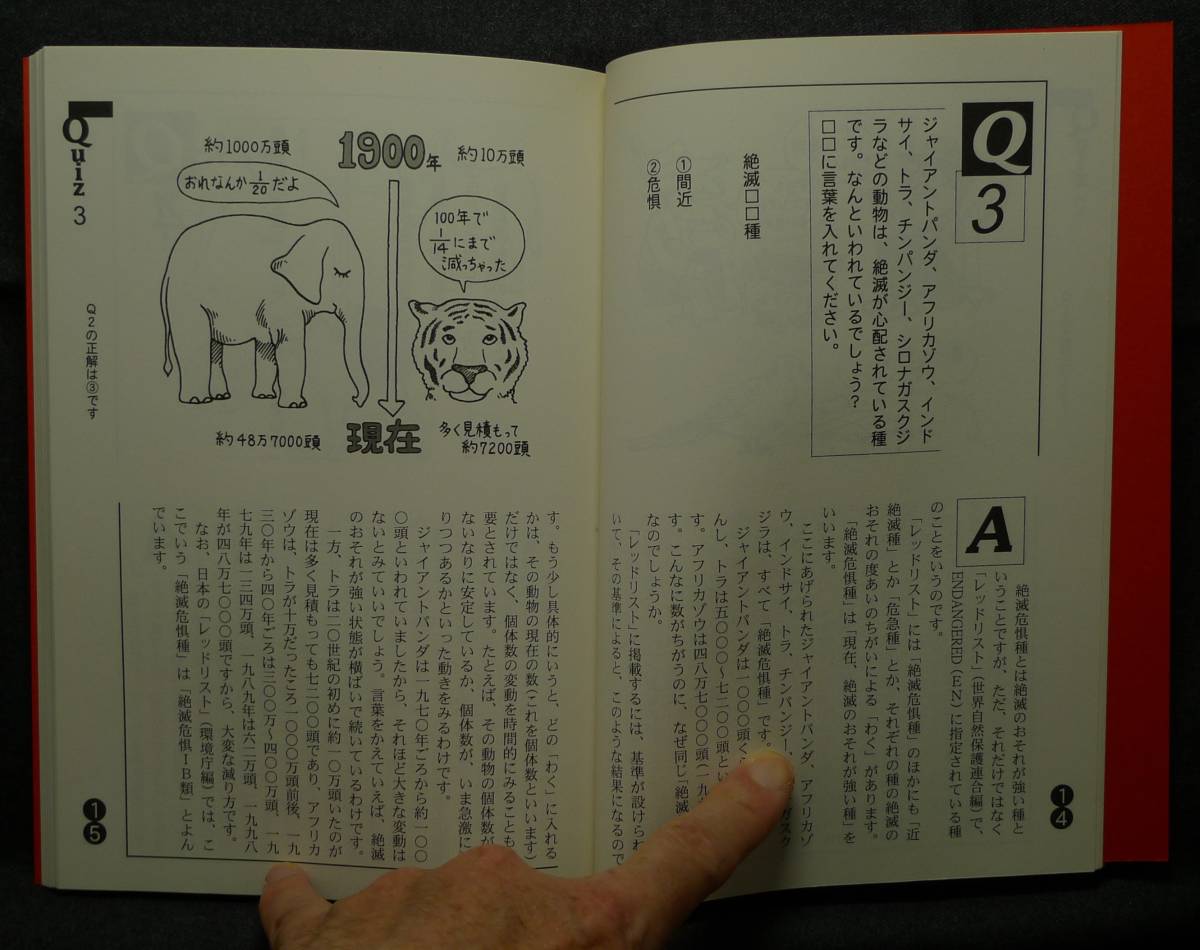 Q
3
ジャイアントパンダ、アフリカゾウ、インド
サイ、トラ、チンパンジー、シロナガスクジ
ラなどの動物は、絶滅が心配されている種
です。なんといわれているでしょう？
□□に言葉を入れてください。
絶滅□□種
①間近
②危惧
A
絶滅危惧種とは絶滅のおそれが強い種と
いうことですが、ただ、それだけではなく
「レッドリスト」（世界自然保護連合編）で、
ENDANGERED（EN）に指定されている種
のことをいうのです。
「レッドリスト」には「絶滅危惧種」のほかにも「近
絶滅種」とか「危急種」とか、それぞれの種の絶滅の
おそれの度あいのちがいによる「わく」があります。
「絶滅危惧種」は「現在、絶滅のおそれが強い種」を
いいます。
ここにあげられたジャイアントパンダ、アフリカゾ
ウ、インドサイ、トラ、チンパンジー、 ガスク
ジラは、すべて「絶滅危惧種」です。
ジャイアントパンダは一〇〇〇頭く
んし、トラは五〇〇〇～七二〇〇頭とい
す。アフリカゾウは四八万七〇〇〇頭（一九
す。こんなに数がちがうのに、なぜ同じ「絶滅
なのでしょうか。
「レッドリスト」に掲載するには、基準が設けられ
いて、その基準によると、このような結果になるので
14
Quiz 3
約1000万頭
1900年
約10万頭
おれなんか1/20だよ
100年で
1/14にまで
減っちゃった
約48万7000頭
現在
多く見積もって
約7200頭
Q2の正解は③です
す。もう少し具体的にいうと、どの「わく」に入れる
かは、その動物の現在の数（これを個体数といいます）
だけではなく、個体数の変動を時間的にみることも
要とされています。たとえば、その動物の個体数が
ないなりに安定しているか、個体数が、いま急激に
りつつあるかといった動きをみるわけです。
ジャイアントパンダは一九七〇年ごろから約一〇〇
〇頭といわれていましたから、それほど大きな変動は
ないとみていいでしょう。言葉をかえていえば、絶滅
のおそれが強い状態が横ばいで続いているわけです。
一方、トラは二〇世紀の初めに約一〇万頭いたのが
現在は多く見積もっても七二〇〇頭であり、アフリカ
ゾウは、トラが十万だったころ一〇〇〇万頭前後、一九
三〇年から四〇年ごろは三〇〇万～四〇〇万頭、一九
七九年は一三四万頭、一九八九年は六二万頭、一九九八
年が四八万七〇〇〇頭ですから、大変な減り方です。
なお、日本の「レッドリスト」（環境庁編）では、こ
こでいう「絶滅危惧種」は「絶滅危惧ⅠB類」とよん
でいます。
15